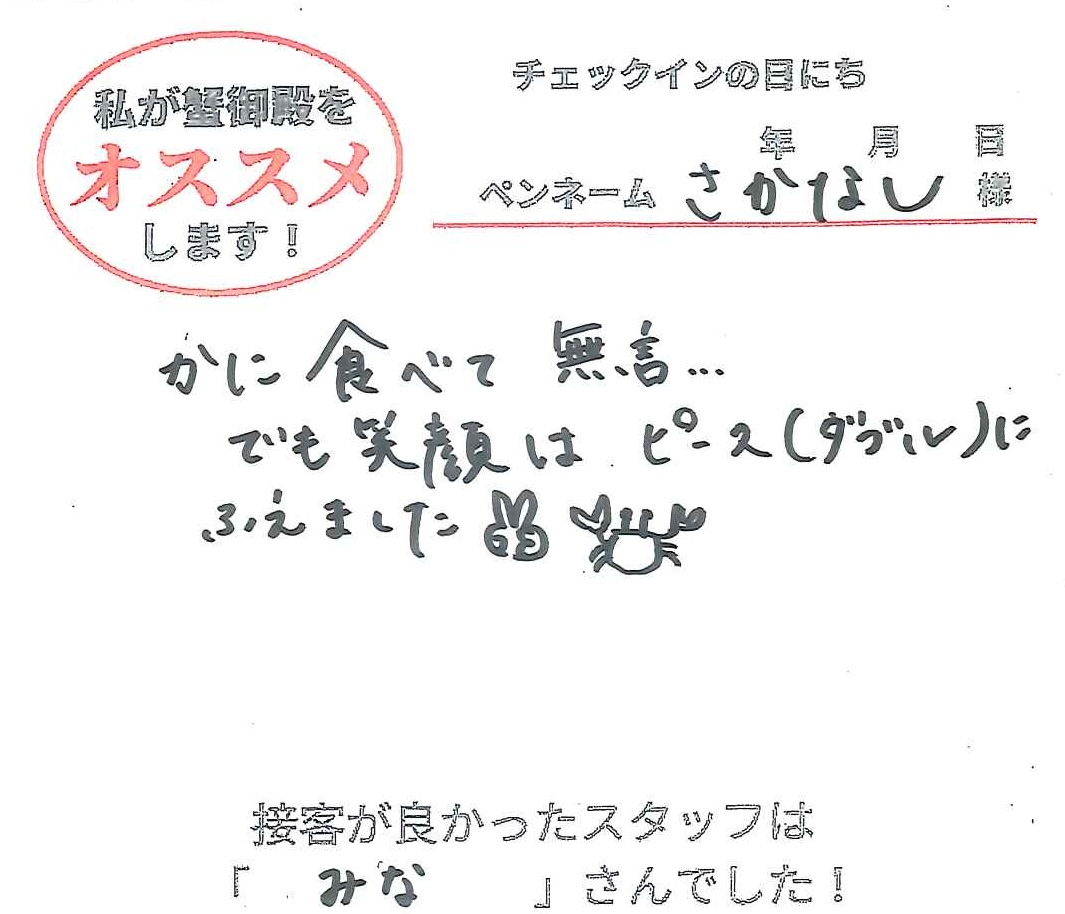 私が蟹御殿を
オススメ
します！
チェックインの日にち
年 月 日
ペンネーム さかなし 様
かに食べて 無言…
でも笑顔は ピース(ダブル)に
ふえました
接客が良かったスタッフは
「 みな 」さんでした！